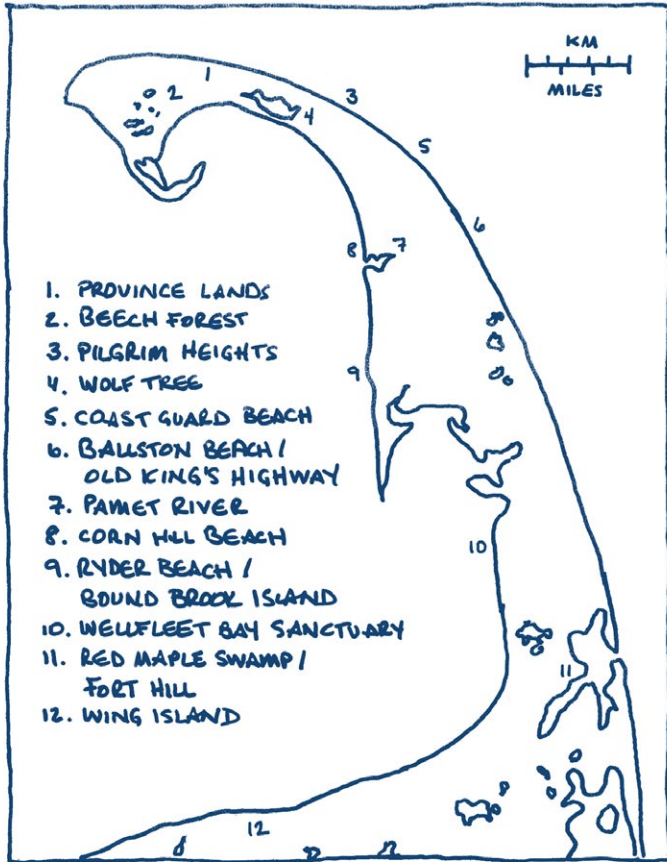 KM
MILES
1
2
3
4
5
6
8 7
9
10
11
12
1. PROVINCE LANDS
2. BEECH FOREST
3. PILGRIM HEIGHTS
4. WOLF TREE
5. COAST GUARD BEACH
6. BALLSTON BEACH /
OLD KING'S HIGHWAY
7. PAMET RIVER
8. CORN HILL BEACH
9. RYDER BEACH /
BOUND BROOK ISLAND
10. WELLFLEET BAY SANCTUARY
11. RED MAPLE SWAMP /
FORT HILL
12. WING ISLAND